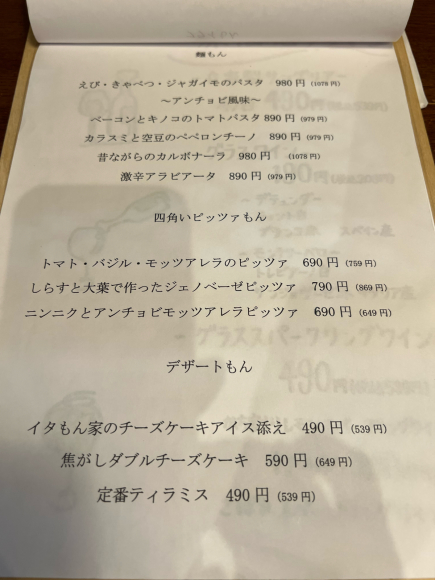 麺もん
えび・きゃべつ・ジャガイモのパスタ 980円（1078円）
～アンチョビ風味～
ベーコンとキノコのトマトパスタ 890円（979円）
カラスミと空豆のペペロンチーノ 890円（979円）
昔ながらのカルボナーラ 980円 （1078円）
激辛アラビアータ 890円（979円）
四角いピッツァもん
トマト・バジル・モッツアレラのピッツァ 690円（759円）
しらすと大葉で作ったジェノベーゼピッツァ 790円（869円）
ニンニクとアンチョビモッツアレラピッツァ 690円（649円）
デザートもん
イタもん家のチーズケーキアイス添え 490円（539円）
焦がしダブルチーズケーキ 590円（649円）
定番ティラミス 490円（539円）